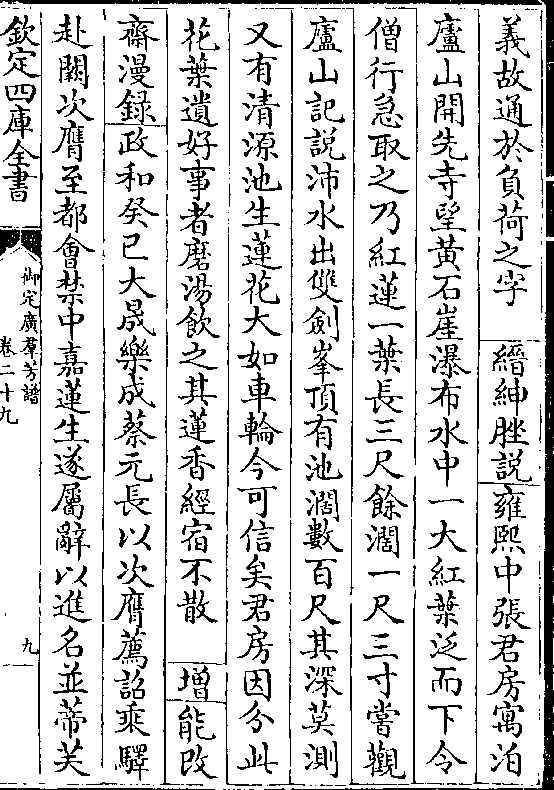 義故通於負荷之字　縉紳脞說雍熙中張君房寓泊
廬山開先寺望黃石崖瀑布水中一大紅葉泛而下令
僧行急取之乃紅蓮一葉長三尺餘濶一尺三寸嘗觀
廬山記說沛水出雙劍峯頂有池濶數百尺其深莫測
又有清源池生蓮花大如車輪今可信矣君房因分此
花葉遺好事者磨湯飲之其蓮香經宿不散　增能改
齋漫録政和癸巳大晟樂成蔡元長以次膺薦詔乘驛
赴闕次膺至都會禁中嘉蓮生遂屬辭以進名並蒂芙
欽定四庫全書
御定廣羣芳譜
卷二十九
九